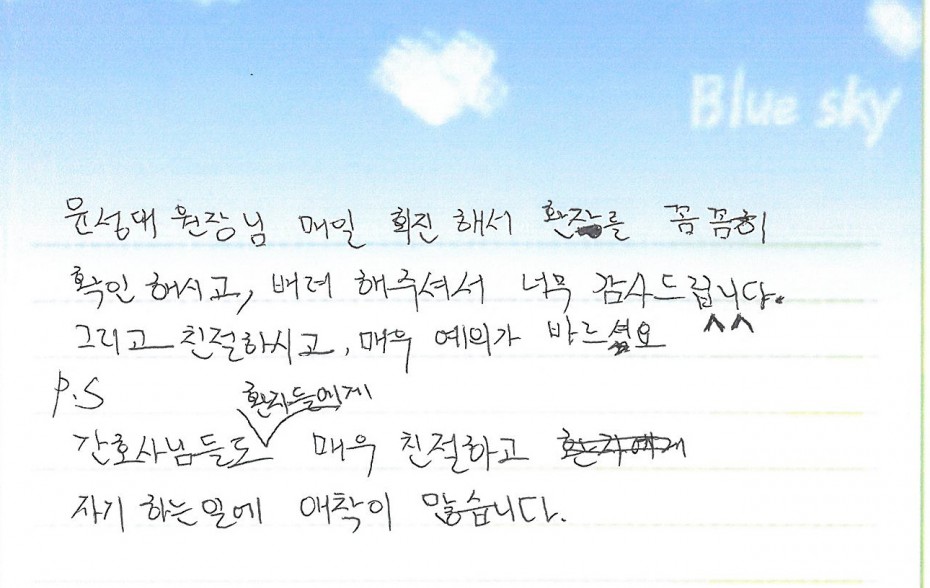 Blue sky
윤성대 원장님 매일 회진 해서 환자를 꼼꼼히
확인 해시고, 배려 해주셔서 너무 감사드립니다.
^^
그리고 친절하시고, 매우 예의가 바르셨요
P.S
환자들에게
간호사님들도 매우 친절하고 환자에게
자기 하는일에 애착이 많습니다.